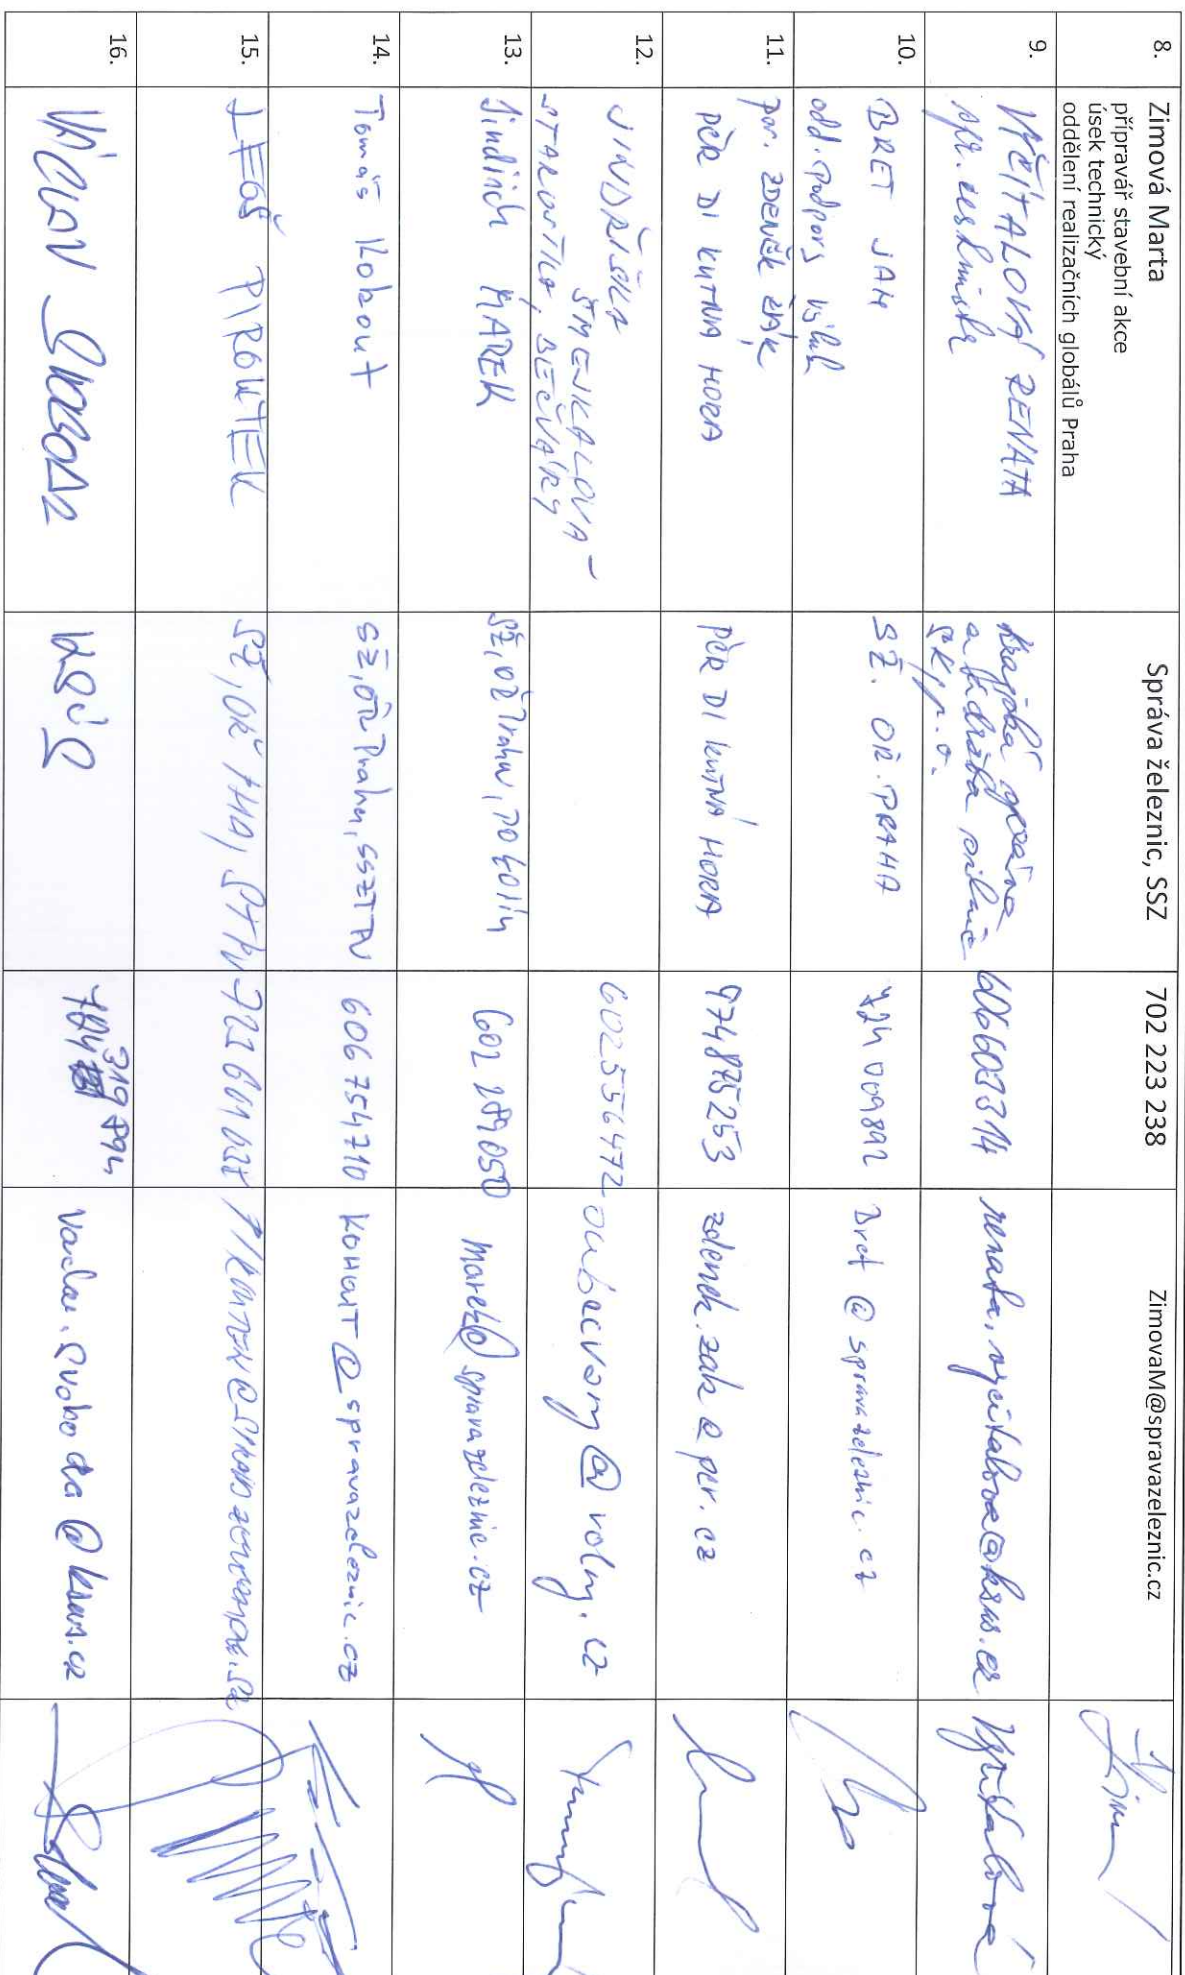 8.
Zimová Marta
přípravář stavební akce
úsek technický
oddělení realizačních globálů Praha
Správa železnic, SSZ
702 223 238
ZimovaM@spravazeleznic.cz
9.
VYČÍTALOVÁ RENATA
Krajská správa
a údržba silnic
SK, p.o.
606603314
renata.vycitalova@ksus.cz
Vyčítalová
10.
BRET JAN
odd. podpory výluk
SŽ. OŘ. PRAHA
724 009892
Bret @ spravazeleznic.cz
11.
por. ZDENĚK ŽÁK
PČR DI KUTNÁ HORA
PČR DI KUTNÁ HORA
974875253
zdenek.zak@pcr.cz
12.
JINDŘIŠKA
ŠMEJKALOVÁ -
STAROSTKA, BEČVÁRY
602556472
oubecvary@volny.cz
13.
Jindřich MAREK
SŽ, OŘ Praha, PO Kolín
602 289050
Marek@spravazeleznic.cz
14.
Tomáš Kohout
SŽ, OŘ Praha, SSZT
606 754710
KOHOUT@spravazeleznic.cz
15.
SŽ, OŘ PHA,
16.
VÁCLAV SVOBODA
KSÚS
319
vaclav.svoboda@ksus.cz